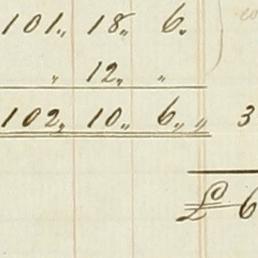 101„ 18„ 6„
„ 12„ „
102„ 10„ 6„ „ 3
£ 6